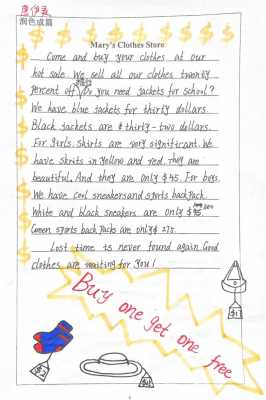 润色成篇
Mary's Clothes Store
Come and buy your clothes at our
hot sale. We sell all our clothes twenty
percent off. Do you need jackets for school?
We have blue jackets for thirty dollars.
Black jackets are thirty-two dollars.
For girls. Skirts are very significant. We
have skrits in Yellow and red. They are
beautiful. And they are only $45. For boys.
We have cool sneakers and sports backjack.
White and black sneakers are only $
Green sports backjacks are only $ 275.
Lost time is never found again. Good
clothes are waiting for you!
Buy one get one free